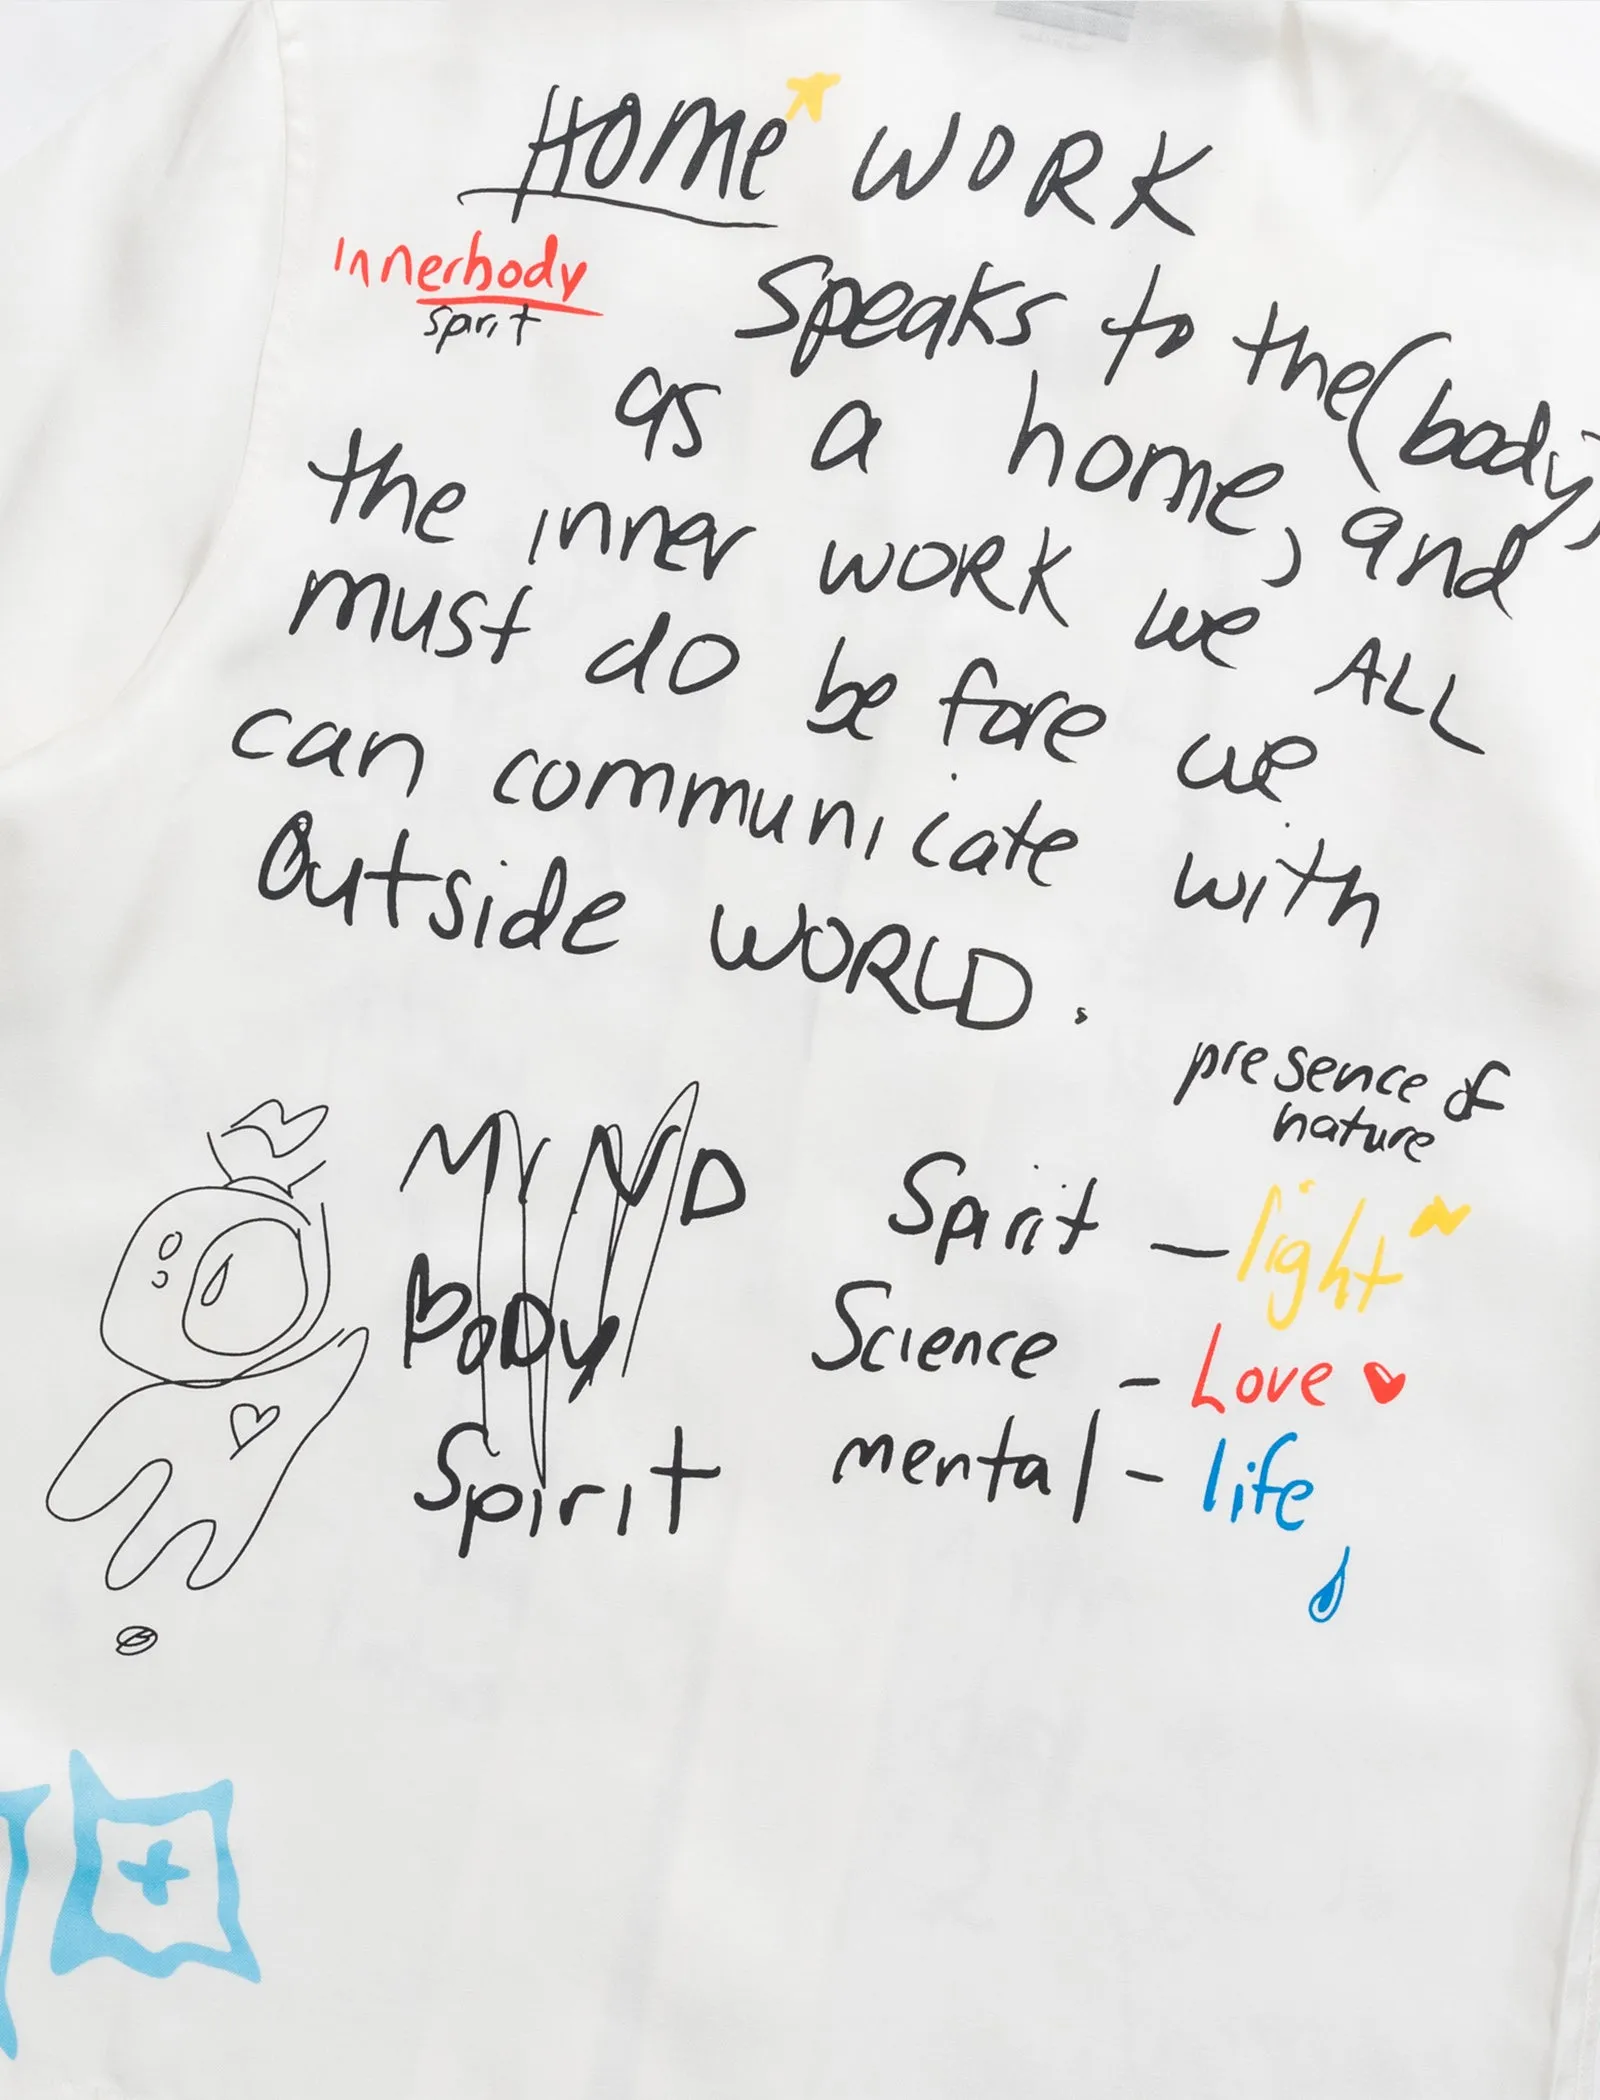 HOMe WORK
Innerbody
spirit
Speaks to the (body)
as a home, and
the inner WORK we ALL
must do before we
can communicate with
Outside WORLD.
presence of
nature
MIND
BODy
Spirit
Spirit — light
Science - Love
mental - life